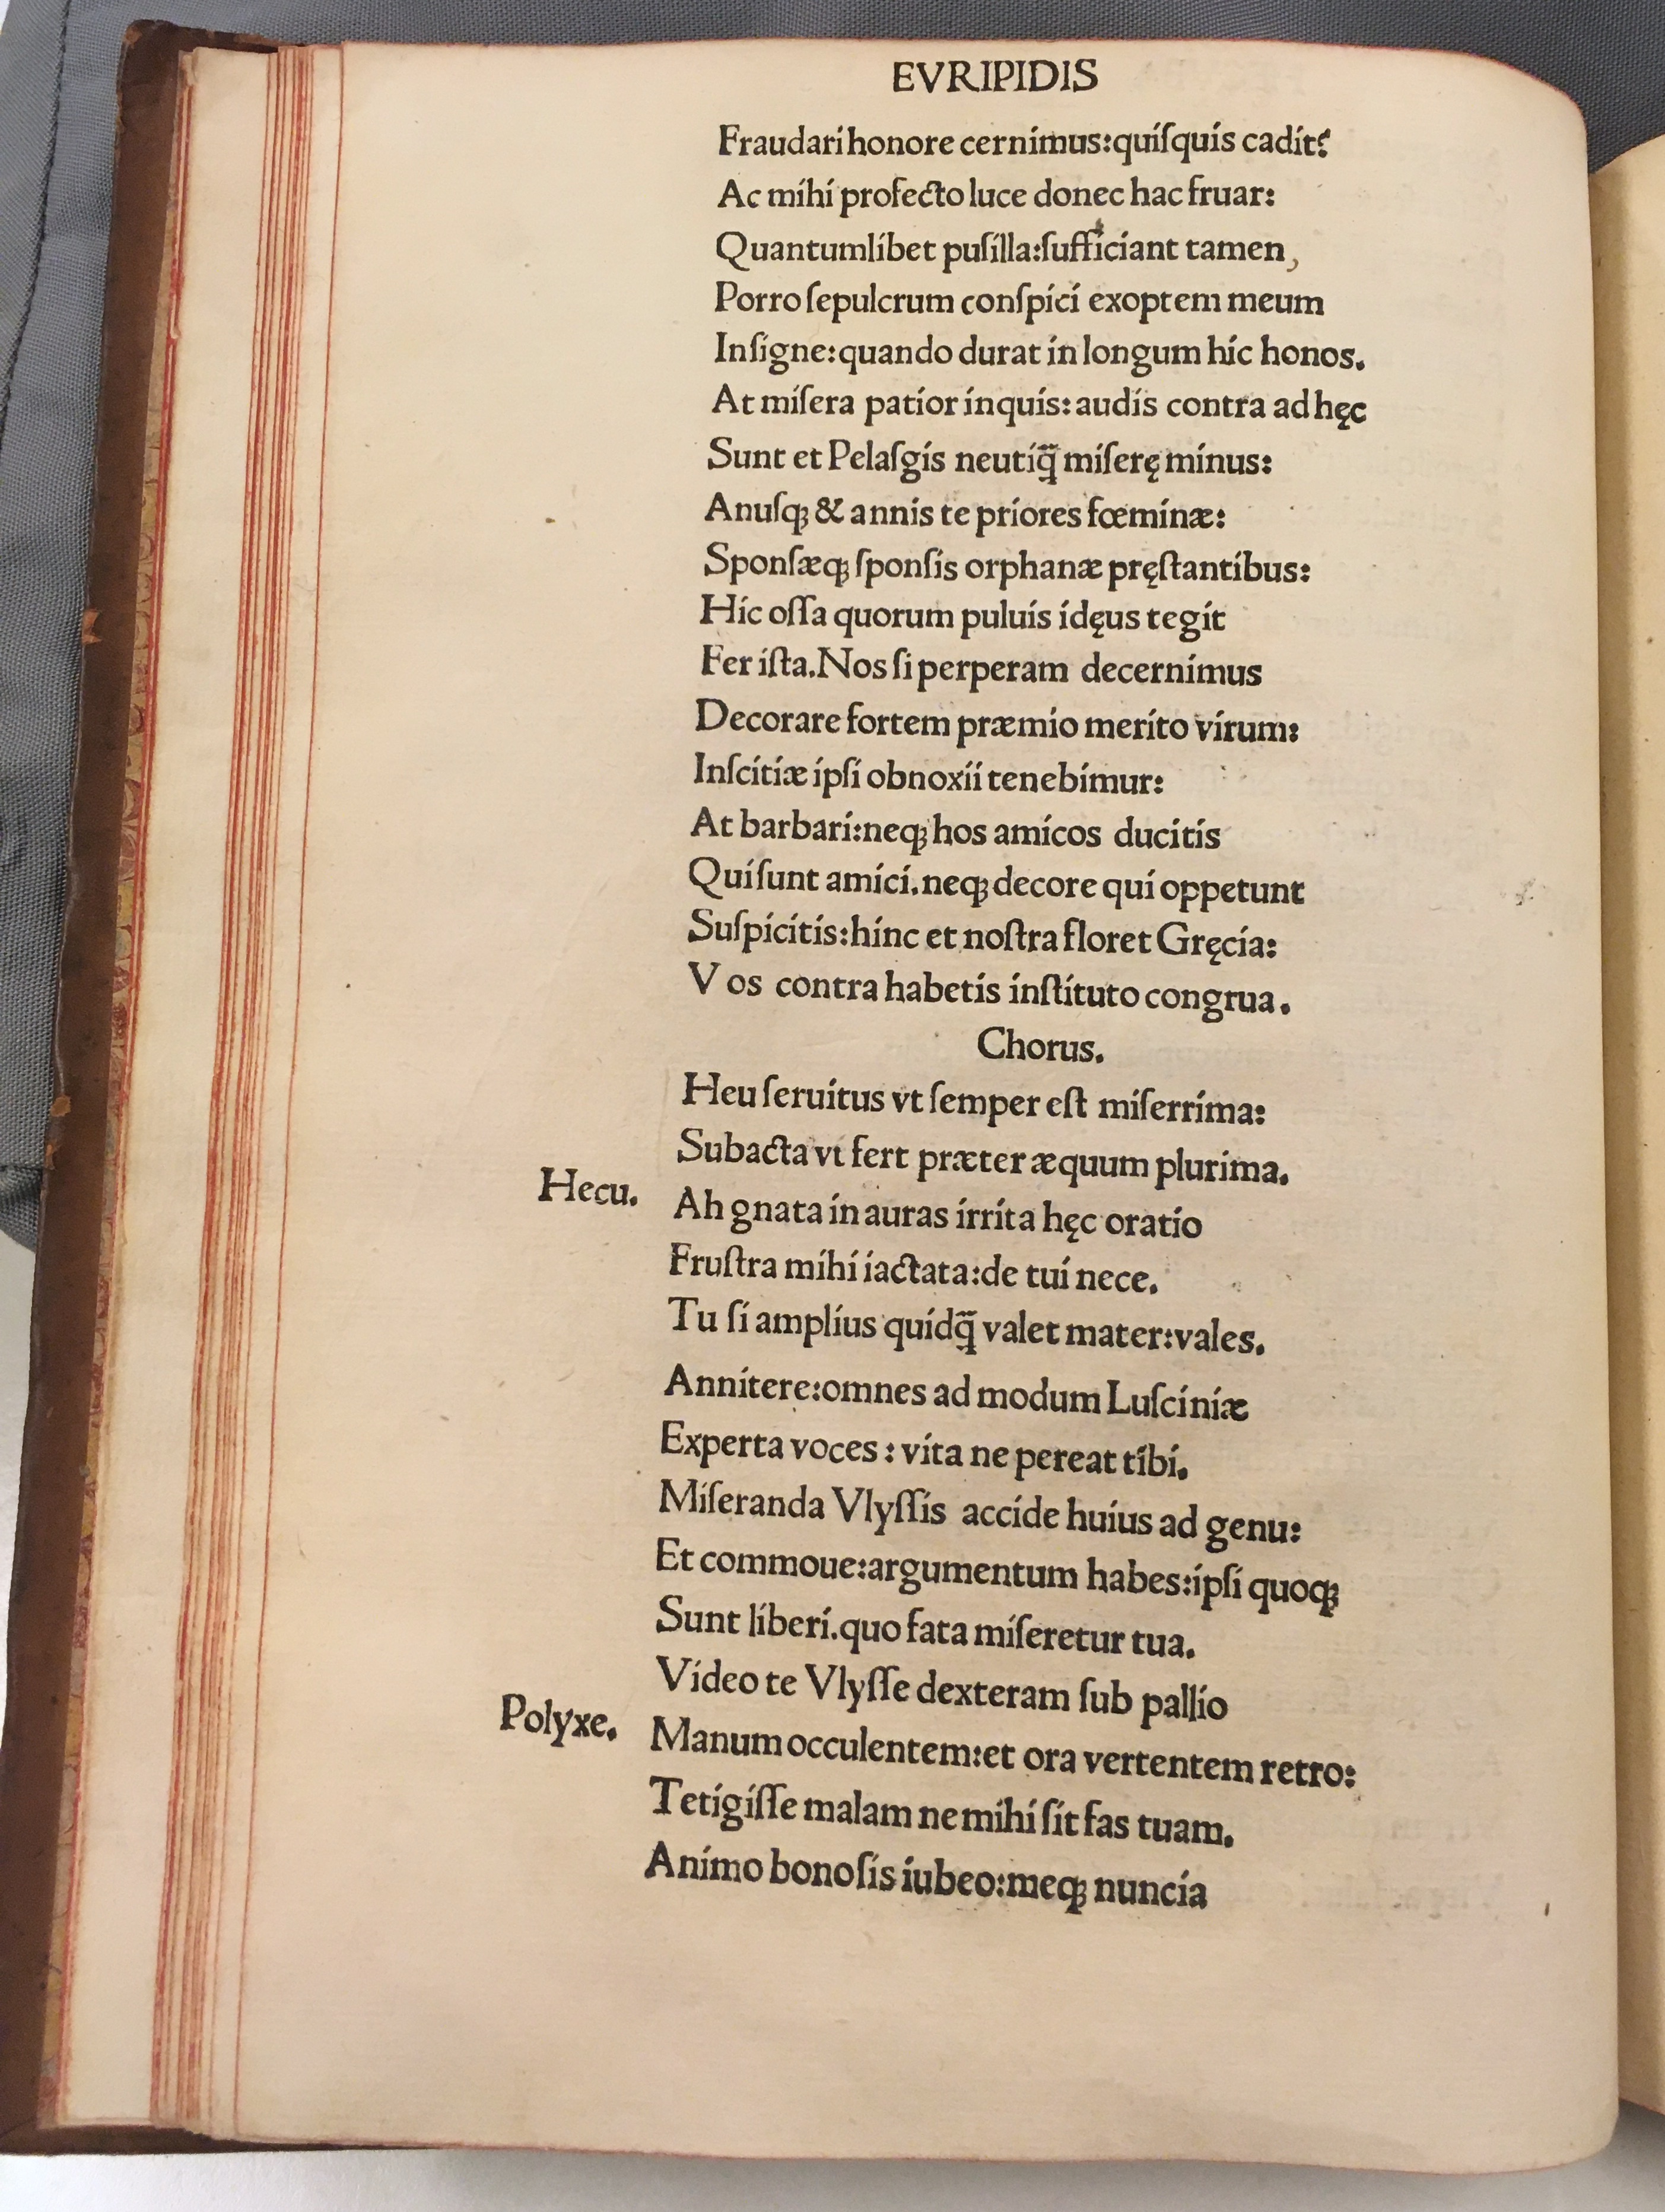 EVRIPIDIS
Fraudari honore cernimus:quiſquis cadit?
Ac mihi profecto luce donec hac fruar:
Quantumlibet puſilla:ſufficiant tamen,
Porro ſepulcrum conſpici exoptem meum
Inſigne:quando durat in longum hic honos.
At miſera patior inquis:audis contra ad hęc
Sunt et Pelaſgis neutiq̃ miſerę minus:
Anuſqꝫ & annis te priores fœminæ:
Sponſæqꝫ ſponſis orphanæ pręſtantibus:
Hic oſſa quorum puluis idęus tegit
Fer iſta.Nos ſi perperam decernimus
Decorare fortem præmio merito virum:
Inſcitiæ ipſi obnoxii tenebimur:
At barbari:neqꝫ hos amicos ducitis
Qui ſunt amici.neqꝫ decore qui oppetunt
Suſpicitis:hinc et noſtra floret Gręcia:
Vos contra habetis inſtituto congrua.
Chorus.
Heu ſeruitus vt ſemper eſt miſerrima:
Subacta vt fert præter æquum plurima.
Hecu. Ah gnata in auras irrita hęc oratio
Fruſtra mihi iactata:de tui nece.
Tu ſi amplius quidq̃ valet mater:vales.
Annitere:omnes ad modum Luſciniæ
Experta voces : vita ne pereat tibi.
Miſeranda Vlyſſis accide huius ad genu:
Et commoue:argumentum habes:ipſi quoqꝫ
Sunt liberi.quo fata miſeretur tua.
Video te Vlyſſe dexteram ſub pallio
Polyxe. Manum occulentem:et ora vertentem retro:
Tetigiſſe malam ne mihi ſit fas tuam.
Animo bono ſis iubeo:meqꝫ nuncia